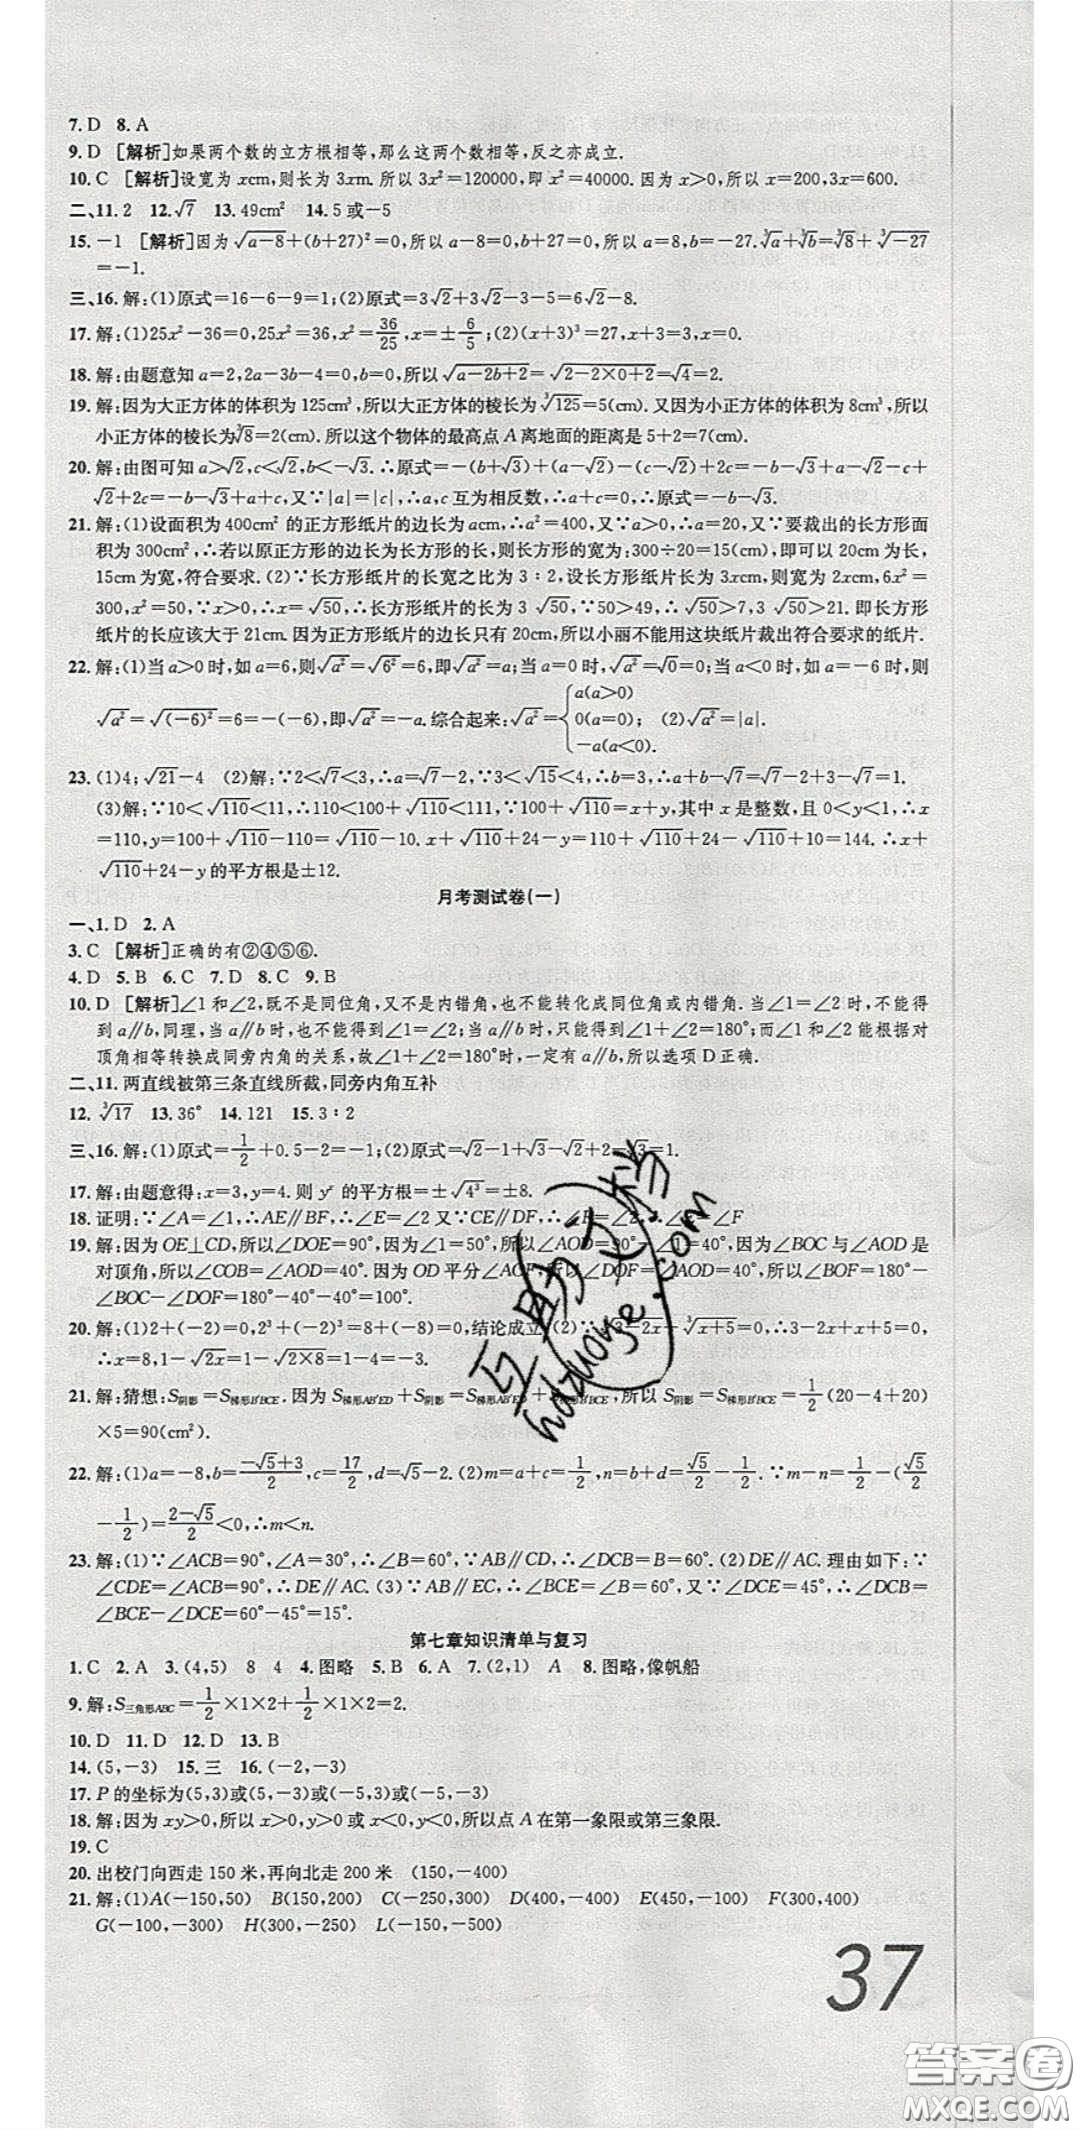 7. D　8. A
9. D　[解析]如果两个数的立方根相等,那么这两个数相等,反之亦成立.
10. C　[解析]设宽为 xcm,则长为 3xm. 所以 3x²=120000,即 x²=40000. 因为 x>0,所以 x=200,3x=600.
二、11. 2　12. √7　13. 49cm²　14. 5 或-5
15. -1　[解析]因为√(a-8)+(b+27)²=0,所以 a-8=0,b+27=0,所以 a=8,b=-27. ∛a+∛b=∛8+∛(-27)
=-1.
三、16. 解:(1)原式=16-6-9=1;(2)原式=3√2+3√2-3-5=6√2-8.
17. 解:(1)25x²-36=0,25x²=36,x²=36/25,x=±6/5;(2)(x+3)³=27,x+3=3,x=0.
18. 解:由题意知 a=2,2a-3b-4=0,b=0,所以√(a-2b+2)=√(2-2×0+2)=√4=2.
19. 解:因为大正方体的体积为 125cm³,所以大正方体的棱长为∛125=5(cm). 又因为小正方体的体积为 8cm³,所以
小正方体的棱长为∛8=2(cm). 所以这个物体的最高点 A 离地面的距离是 5+2=7(cm).
20. 解:由图可知 a>√2,c<√2,b<-√3. ∴原式=-(b+√3)+(a-√2)-(c-√2)+2c=-b-√3+a-√2-c+
√2+2c=-b-√3+a+c,又∵|a|=|c|,∴a,c 互为相反数,∴原式=-b-√3.
21. 解:(1)设面积为 400cm² 的正方形纸片的边长为 acm,∴a²=400,又∵a>0,∴a=20,又∵要裁出的长方形面
积为 300cm²,∴若以原正方形的边长为长方形的长,则长方形的宽为:300÷20=15(cm),即可以 20cm 为长,
15cm 为宽,符合要求. (2)∵长方形纸片的长宽之比为 3∶2,设长方形纸片的长为 3xcm,则宽为 2xcm,6x²=
300,x²=50,∵x>0,∴x=√50,∴长方形纸片的长为 3√50,∵50>49,∴√50>7,3√50>21. 即长方形
纸片的长应该大于 21cm. 因为正方形纸片的边长只有 20cm,所以小丽不能用这块纸片裁出符合要求的纸片.
22. 解:(1)当 a>0 时,如 a=6,则√a²=√6²=6,即√a²=a;当 a=0 时,√a²=√0=0;当 a<0 时,如 a=-6 时,则
√a²=√(-6)²=6=-(-6),即√a²=-a. 综合起来:√a²={a(a>0) 0(a=0); -a(a<0). (2)√a²=|a|.
23. (1)4;√21-4　(2)解:∵2<√7<3,∴a=√7-2,∵3<√15<4,∴b=3,∴a+b-√7=√7-2+3-√7=1.
(3)解:∵10<√110<11,∴110<100+√110<111,∵100+√110=x+y,其中 x 是整数,且 0<y<1,∴x
=110,y=100+√110-110=√110-10. x+√110+24-y=110+√110+24-√110+10=144. ∴x+
√110+24-y 的平方根是±12.
月考测试卷(一)
一、1. D　2. A
3. C　[解析]正确的有②④⑤⑥.
4. D　5. B　6. C　7. D　8. C　9. B
10. D　[解析]∠1 和∠2,既不是同位角,又不是内错角,也不能转化成同位角或内错角. 当∠1=∠2 时,不能得
到 a∥b,同理,当 a∥b 时,也不能得到∠1=∠2;当 a∥b 时,只能得到∠1+∠2=180°;而∠1 和∠2 能依据对
顶角相等转换成同旁内角的关系,故∠1+∠2=180°时,一定有 a∥b,所以选项 D 正确.
二、11. 两直线被第三条直线所截,同旁内角互补
12. ∛17　13. 36°　14. 121　15. 3∶2
三、16. 解:(1)原式=1/2+0.5-2=-1;(2)原式=√2-1+√3-√2+2-√3=1.
17. 解:由题意得:x=3,y=4. 则 yˣ 的平方根=±√4³=±8.
18. 证明:∵∠A=∠1,∴AE∥BF,∴∠E=∠2 又∵CE∥DF,∴∠F=∠2,∴∠E=∠F
19. 解:因为 OE⊥CD,所以∠DOE=90°,因为∠1=50°,所以∠AOD=90°-∠1=40°,因为∠BOC 与∠AOD 是
对顶角,所以∠COB=∠AOD=40°. 因为 OD 平分∠AOF,所以∠DOF=∠AOD=40°,所以∠BOF=180°-
∠BOC-∠DOF=180°-40°-40°=100°.
20. 解:(1)2+(-2)=0,2³+(-2)³=8+(-8)=0,结论成立. (2)∵∛(3-2x)+∛(x+5)=0,∴3-2x+x+5=0,
∴x=8,1-√2x=1-√(2×8)=1-4=-3.
21. 解:猜想:S阴影=S梯形B′BCE. 因为 S梯形AB′ED+S阴影=S梯形AB′ED+S梯形B′BCE,所以 S阴影=S梯形B′BCE=1/2(20-4+20)
×5=90(cm²).
22. 解:(1)a=-8,b=(-√5+3)/2,c=17/2,d=√5-2. (2)m=a+c=1/2,n=b+d=√5/2-1/2. ∵m-n=1/2-(√5/2
-1/2)=(2-√5)/2<0,∴m<n.
23. 解:(1)∵∠ACB=90°,∠A=30°,∴∠B=60°,∵AB∥CD,∴∠DCB=B=60°. (2)DE∥AC. 理由如下:∵
∠CDE=∠ACB=90°,∴DE∥AC. (3)∵AB∥EC,∴∠BCE=∠B=60°,又∵∠DCE=45°,∴∠DCB=
∠BCE-∠DCE=60°-45°=15°.
第七章知识清单与复习
1. C　2. A　3. (4,5)　8　4　4. 图略　5. B　6. A　7. (2,1)　A　8. 图略,像帆船
9. 解:S三角形ABC=1/2×1×2+1/2×1×2=2.
10. D　11. D　12. D　13. B
14. (5,-3)　15. 三　16. (-2,-3)
17. P 的坐标为(5,3)或(5,-3)或(-5,3)或(-5,-3)
18. 解:因为 xy>0,所以 x>0,y>0 或 x<0,y<0,所以点 A 在第一象限或第三象限.
19. C
20. 出校门向西走 150 米,再向北走 200 米　(150,-400)
21. 解:(1)A(-150,50)　B(150,200)　C(-250,300)　D(400,-400)　E(450,-100)　F(300,400)
G(-100,-300)　H(300,-300)　L(-150,-500)
37
答案圈
MXQE.COM
互助文学
hdzuoye.com